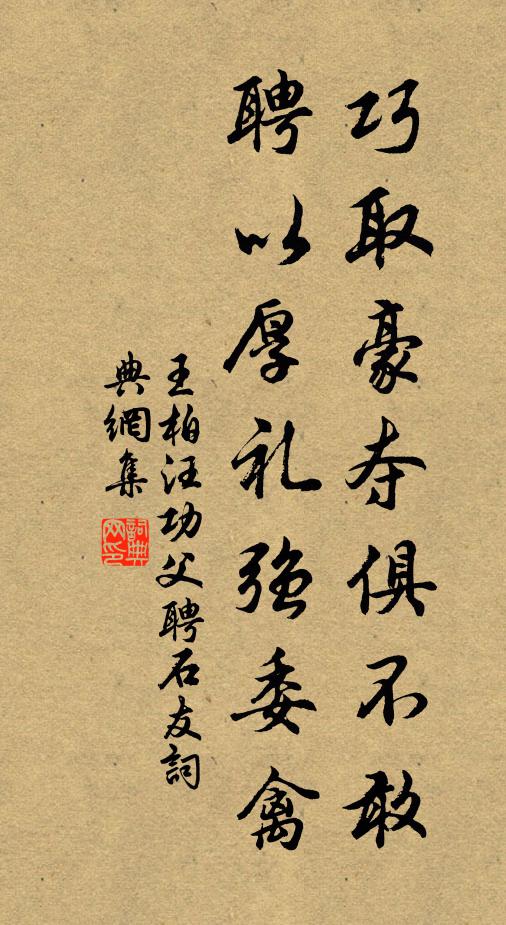 巧取豪夺俱不敢
聘以厚礼強委禽
王柏汪功父聘石友詞
典網集
詞典網印